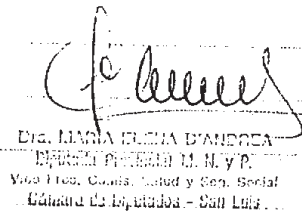 Dip. MARIA ELENA D'ANDREA
Diputada Provincial M. N. y P.
Vice Pres. Comis. Salud y Seg. Social
Cámara de Diputados - San Luis